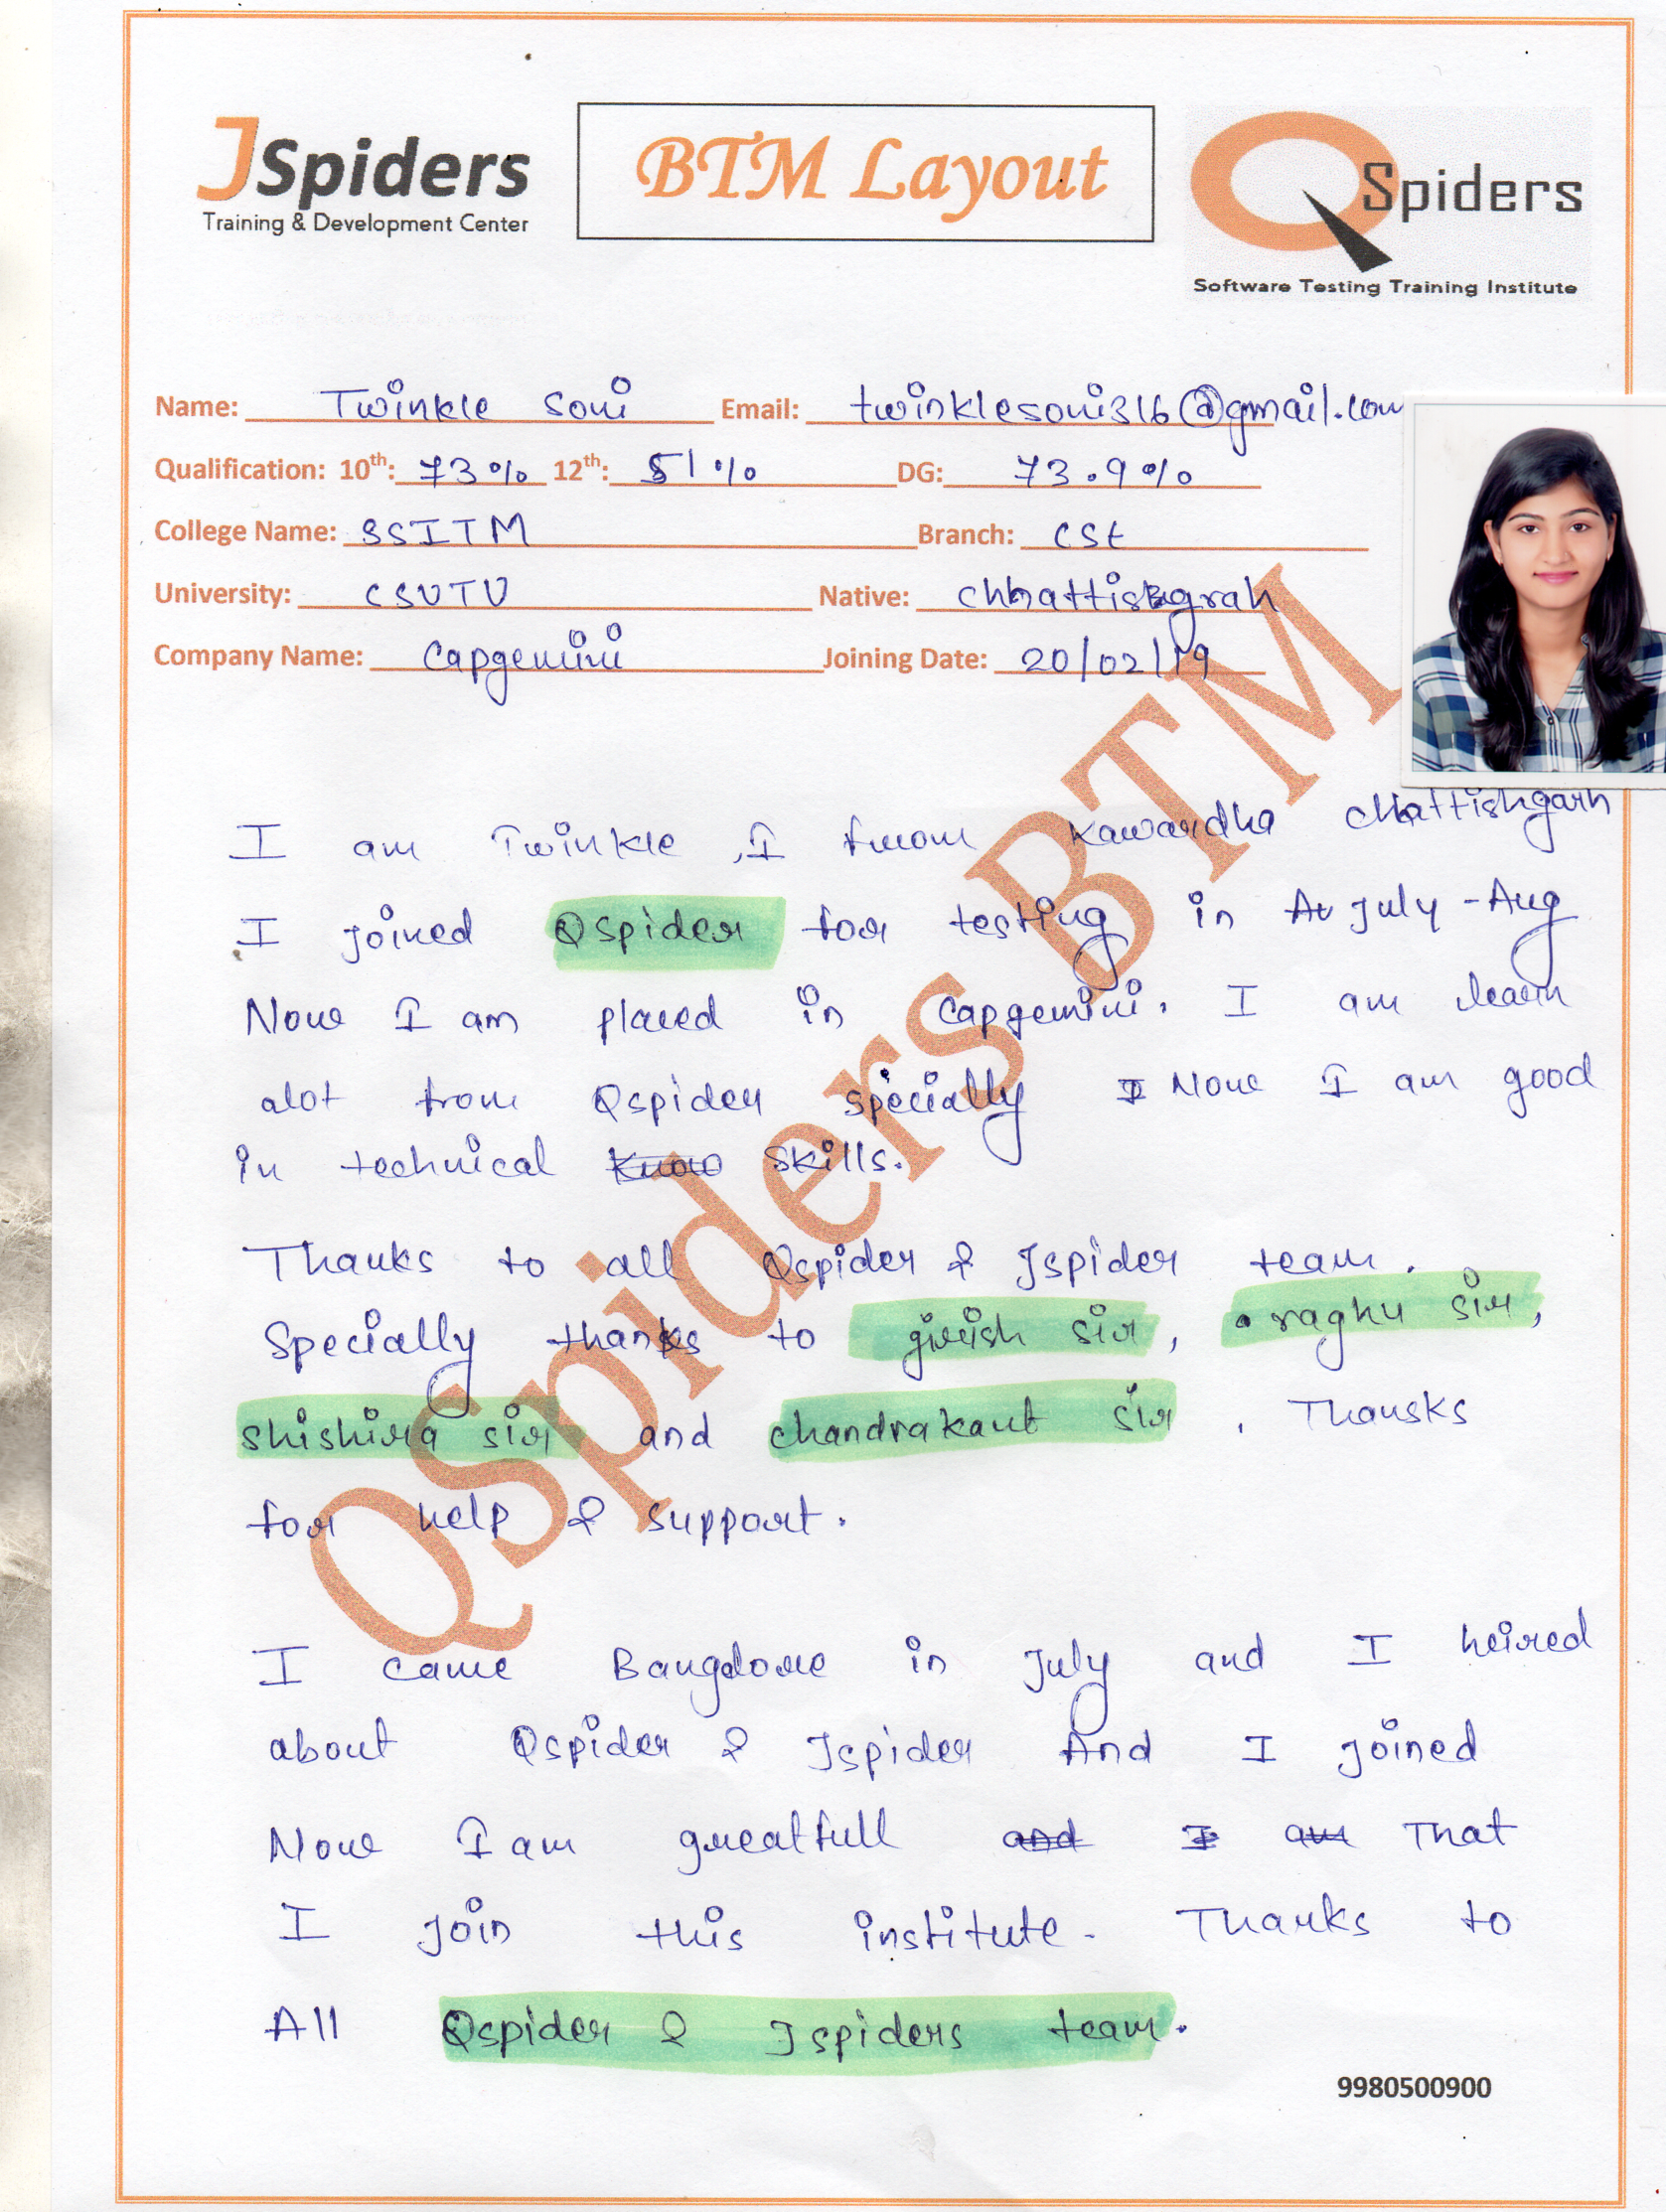 JSpiders
Training & Development Center
BTM Layout
QSpiders
Software Testing Training Institute
Name: Twinkle Soni Email: twinklesoni316@gmail.com
Qualification: 10th: 73% 12th: 51% DG: 73.9%
College Name: SSITM Branch: CSE
University: CSVTU Native: Chhattisgrah
Company Name: Capgemini Joining Date: 20/02/19
I am Twinkle, I from Kawardha Chattishgarh
I joined Qspider for testing in July - Aug
Now I am placed in Capgemini. I am learn
alot from Qspider specially Now I am good
in technical skills.
Thanks to all Qspider & Jspider team.
Specially thanks to girish sir, raghu sir,
shishira sir and chandrakant sir. Thansks
for help & support.
I came Bangalore in July and I heired
about Qspider & Jspider And I joined
Now I am greatfull That
I join this institute. Thanks to
All Qspider & Jspiders team.
9980500900
QSpiders BTM